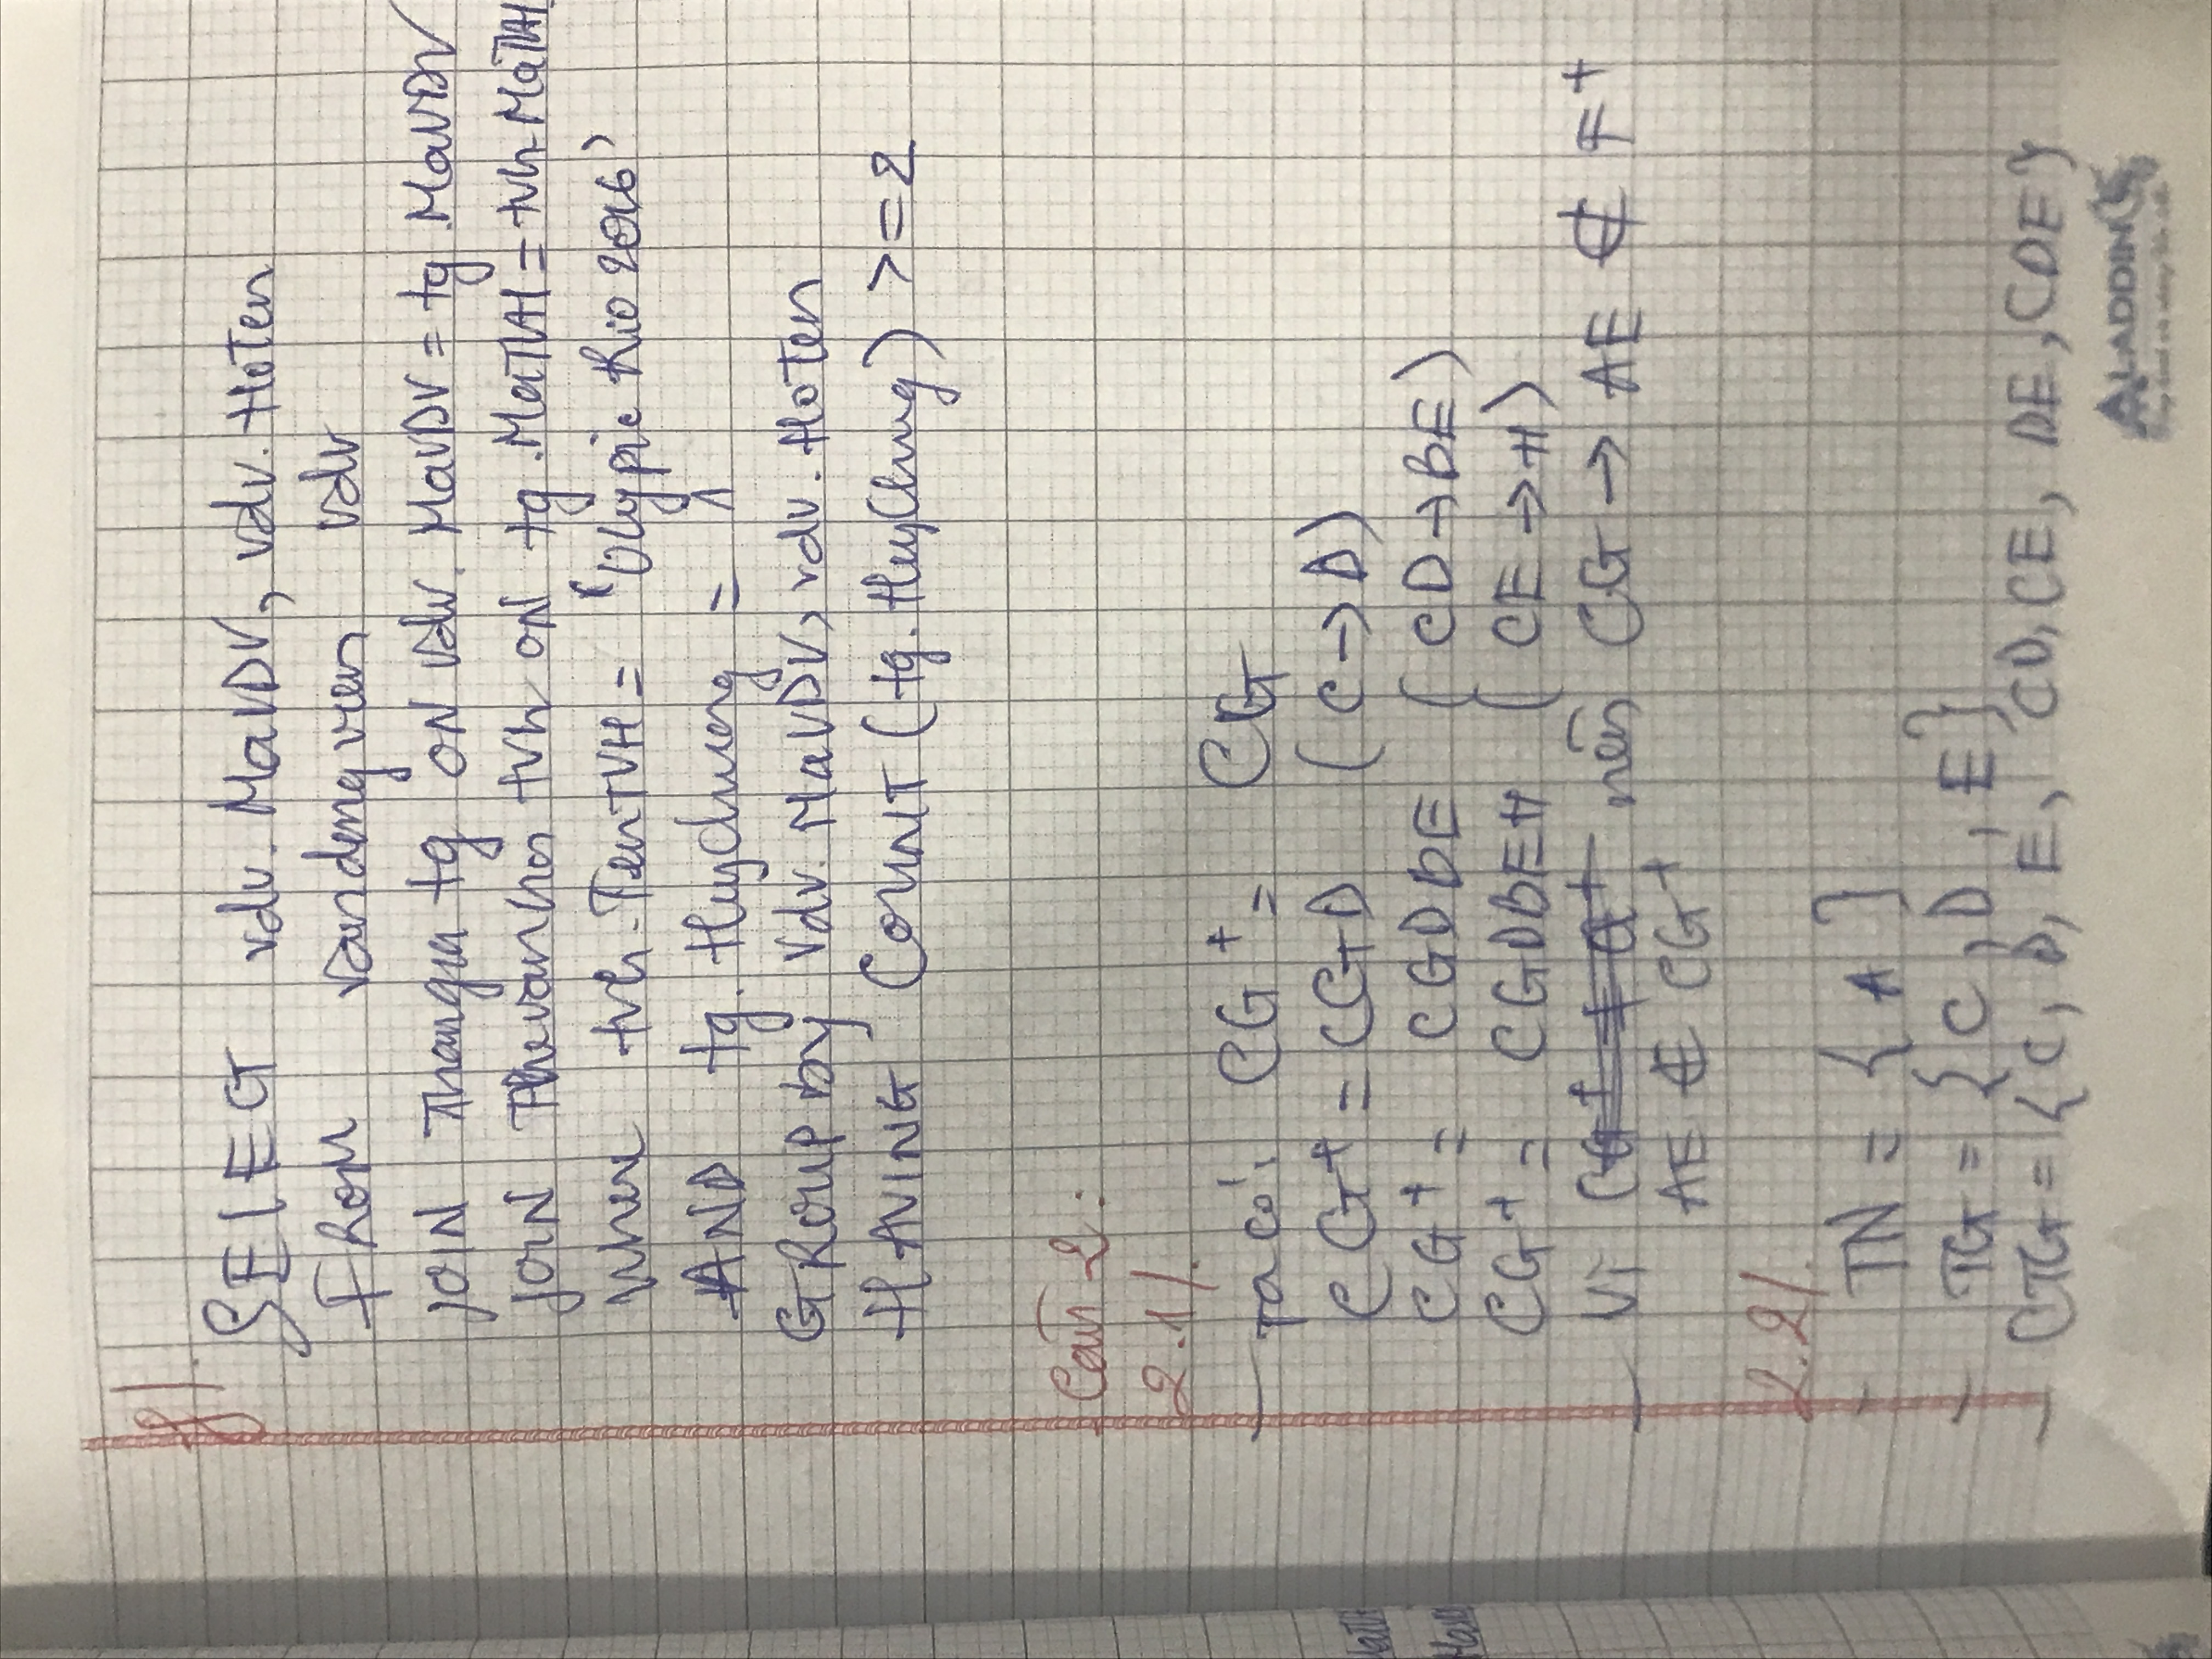 g/.
SELECT vdv. MaVDV, vdv. HoTen
FROM vandongvien vdv
JOIN Thamgia tg ON vdv. MaVDV = tg .MaVDV
JOIN Thevanhoi tvh ON tg .MaTVH = tvh.MaTVH
where tvh.TenTVH = 'Olypic Rio 2016'
AND tg. HuyChuong = 1
GROUP by vdv. MaVDV, vdv. HoTen
HAVING COUNT (tg. HuyChung) >= 2
Câu 2:
2.1/.
- Ta có: CG⁺ = CG
CG⁺ = CGD (C → D)
CG⁺ = CGDBE (CD → BE)
CG⁺ = CGDBEH (CE → H)
- Vì nên CG → AE ∉ F⁺
AE ∉ CG⁺
2.2/.
- TN = { A }
- TG = { C , D , E }
- CTG = { C, D, E, CD, CE, DE, CDE }
ALADDIN